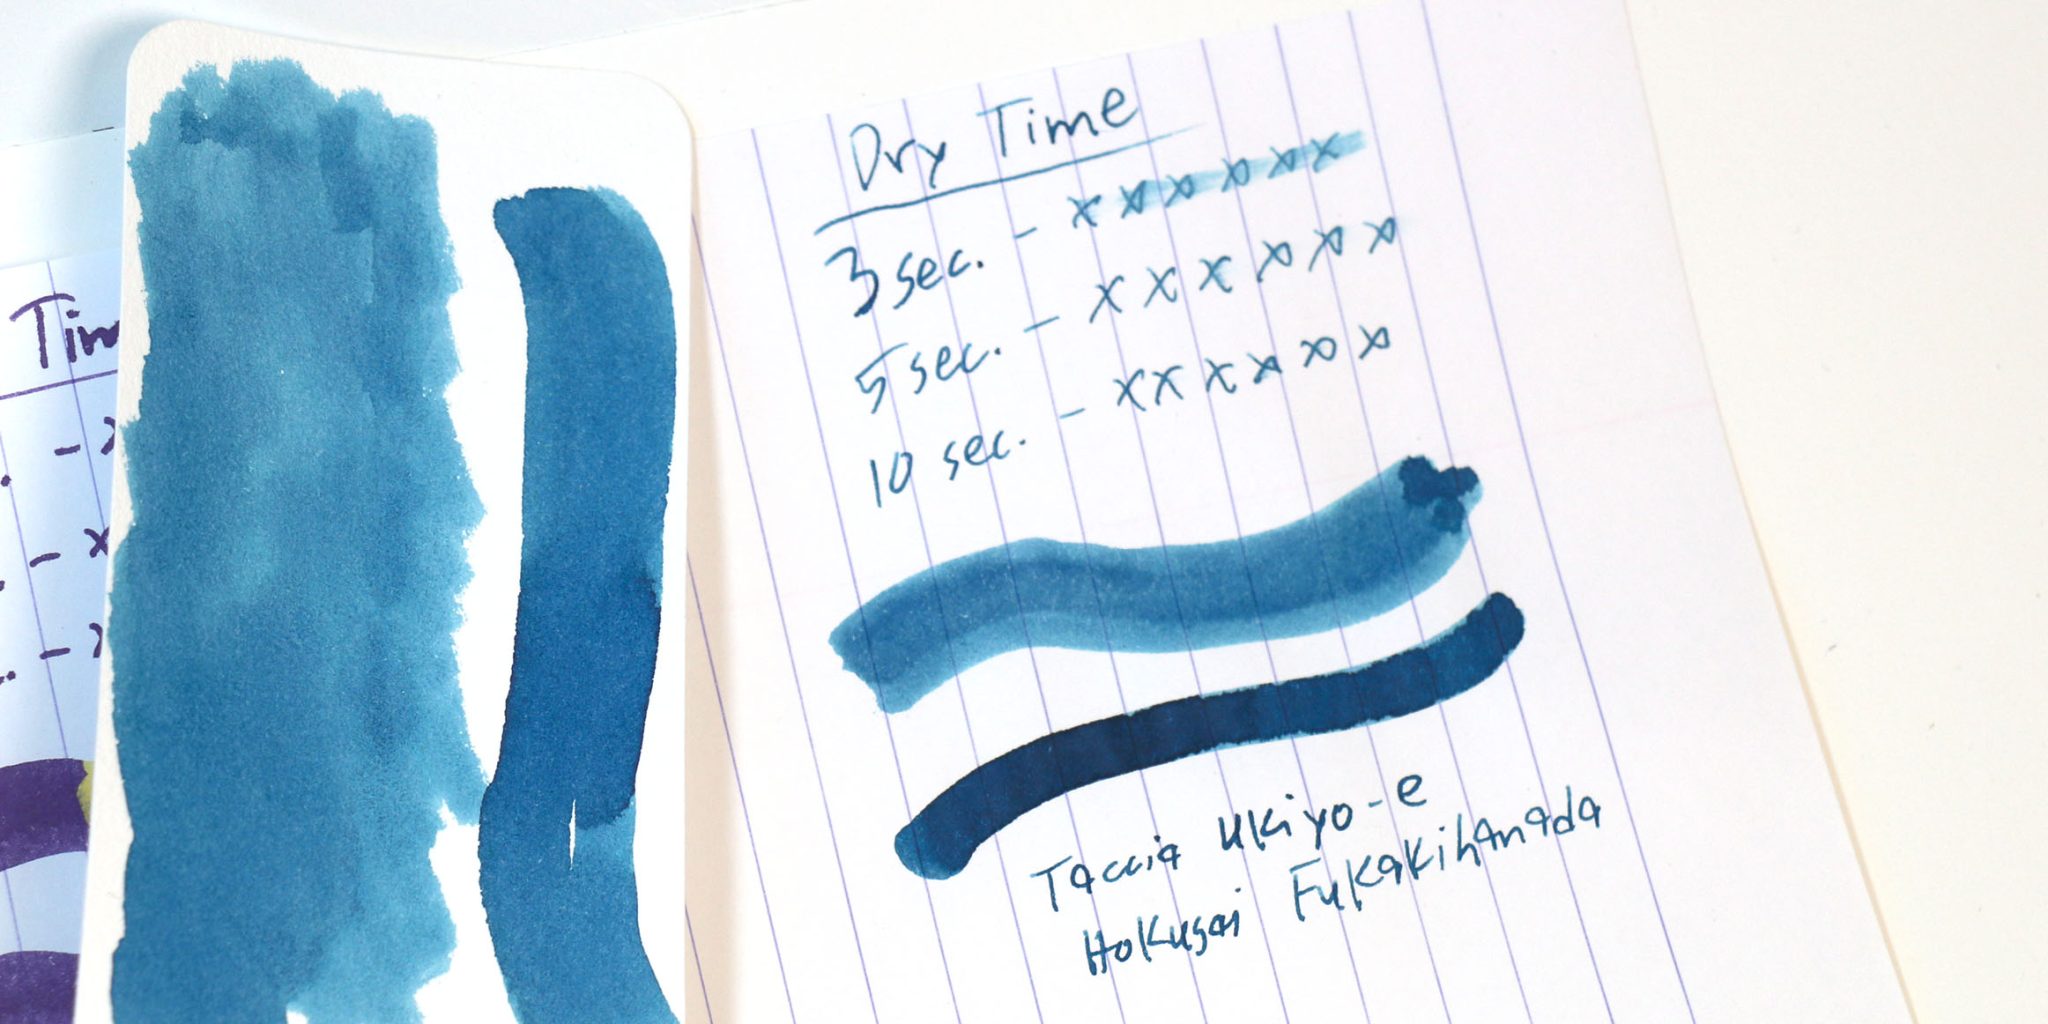 Dry Time
3 sec. - x x x x x x
5 sec. - x x x x x x
10 sec. - x x x x x x
Taccia Ukiyo-e
Hokusai Fukakihanada